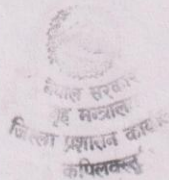 नेपाल सरकार
गृह मन्त्रालय
जिल्ला प्रशासन
कपिलवस्तु